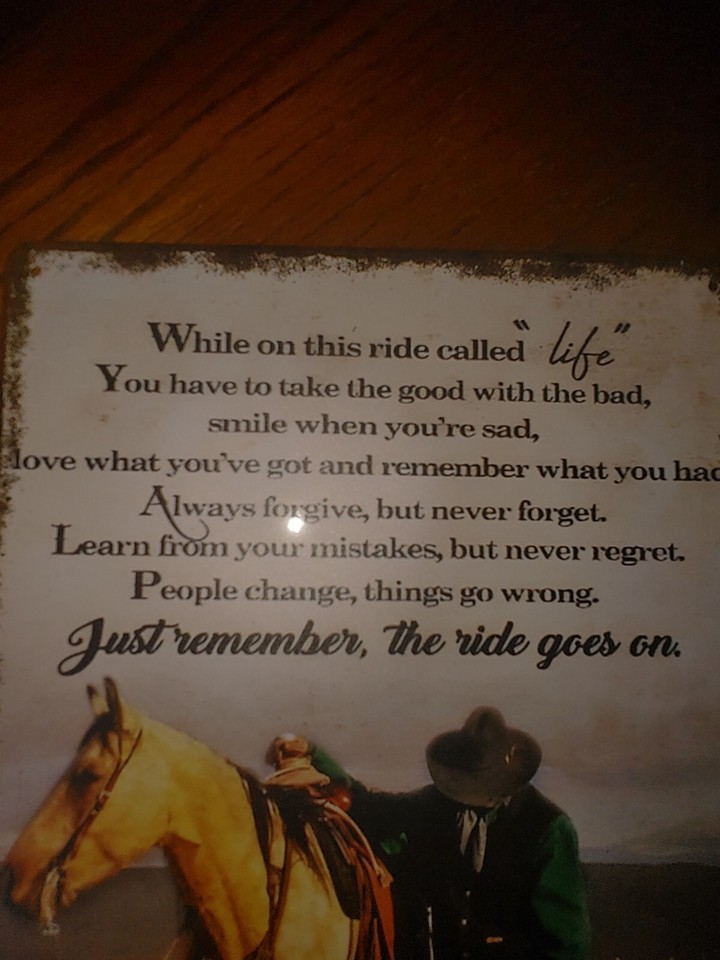 While on this ride called "life"
You have to take the good with the bad,
smile when you're sad,
love what you've got and remember what you had
Always forgive, but never forget.
Learn from your mistakes, but never regret.
People change, things go wrong.
Just remember, the ride goes on.